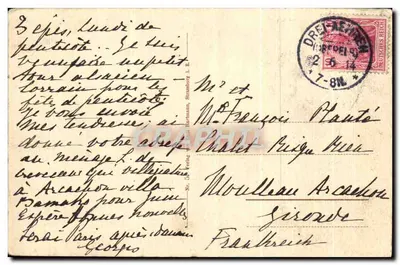 3 épis, Lundi de
pentecôte.. Je suis
venu faire un petit
tour alsacien-
Lorrain pour les
fête de pentecôte
Je vous envoie
Mes tendresses. ai
donne votre adresse
au menage L. de
que villegiature
a Arcachon villa
pour Juin
Espère bonnes nouvelles
Serai Paris après-demain
Georges
DREI-AEHREN
(OBERELS.)
2 6 14
*7-8N.*
Mr et
Me François Planté
Chalet Rien
Moulleau Arcachon
Gironde
Frankreich